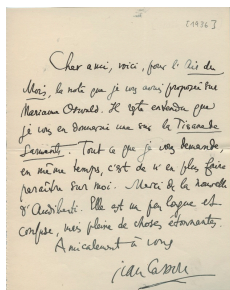 [1936]
Cher ami, voici, pour l'Air du
Mois, la note que je vous avais proposée sur
Marianne Oswald. Il reste entendu que
je vous en donnerai une sur la
Tout ce que je vous demande,
en même temps, c'est de n'en plus faire
paraître sur moi. Merci de la nouvelle
d'Audiberti. Elle est un peu longue et
confuse, mais pleine de choses étonnantes.
Amicalement à vous
Jean Cassou